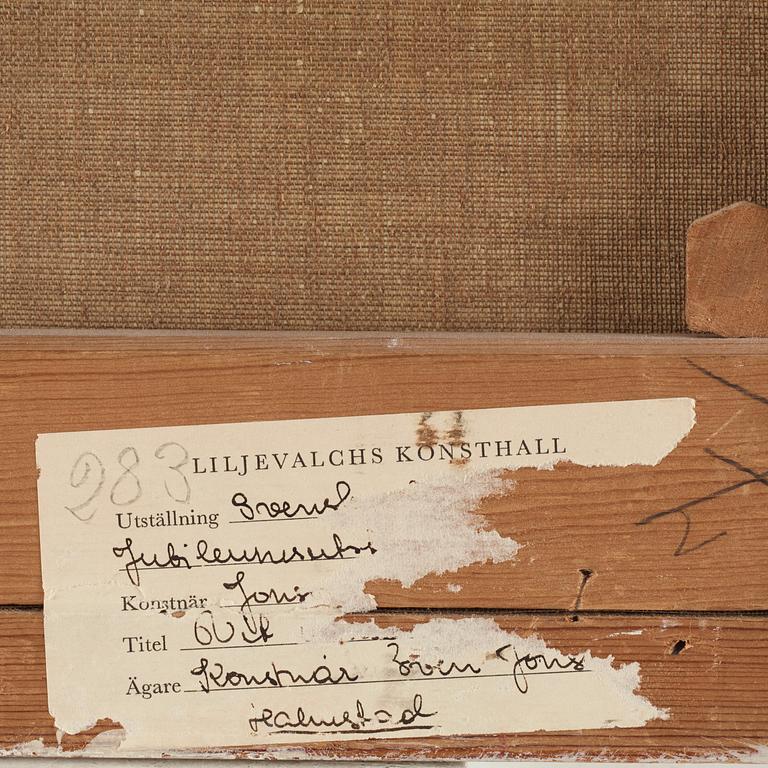 283 LILJEVALCHS KONSTHALL
Utställning Svensk
Konstnär Jons
Titel
Ägare Konstnär Sven Jons
Halmstad